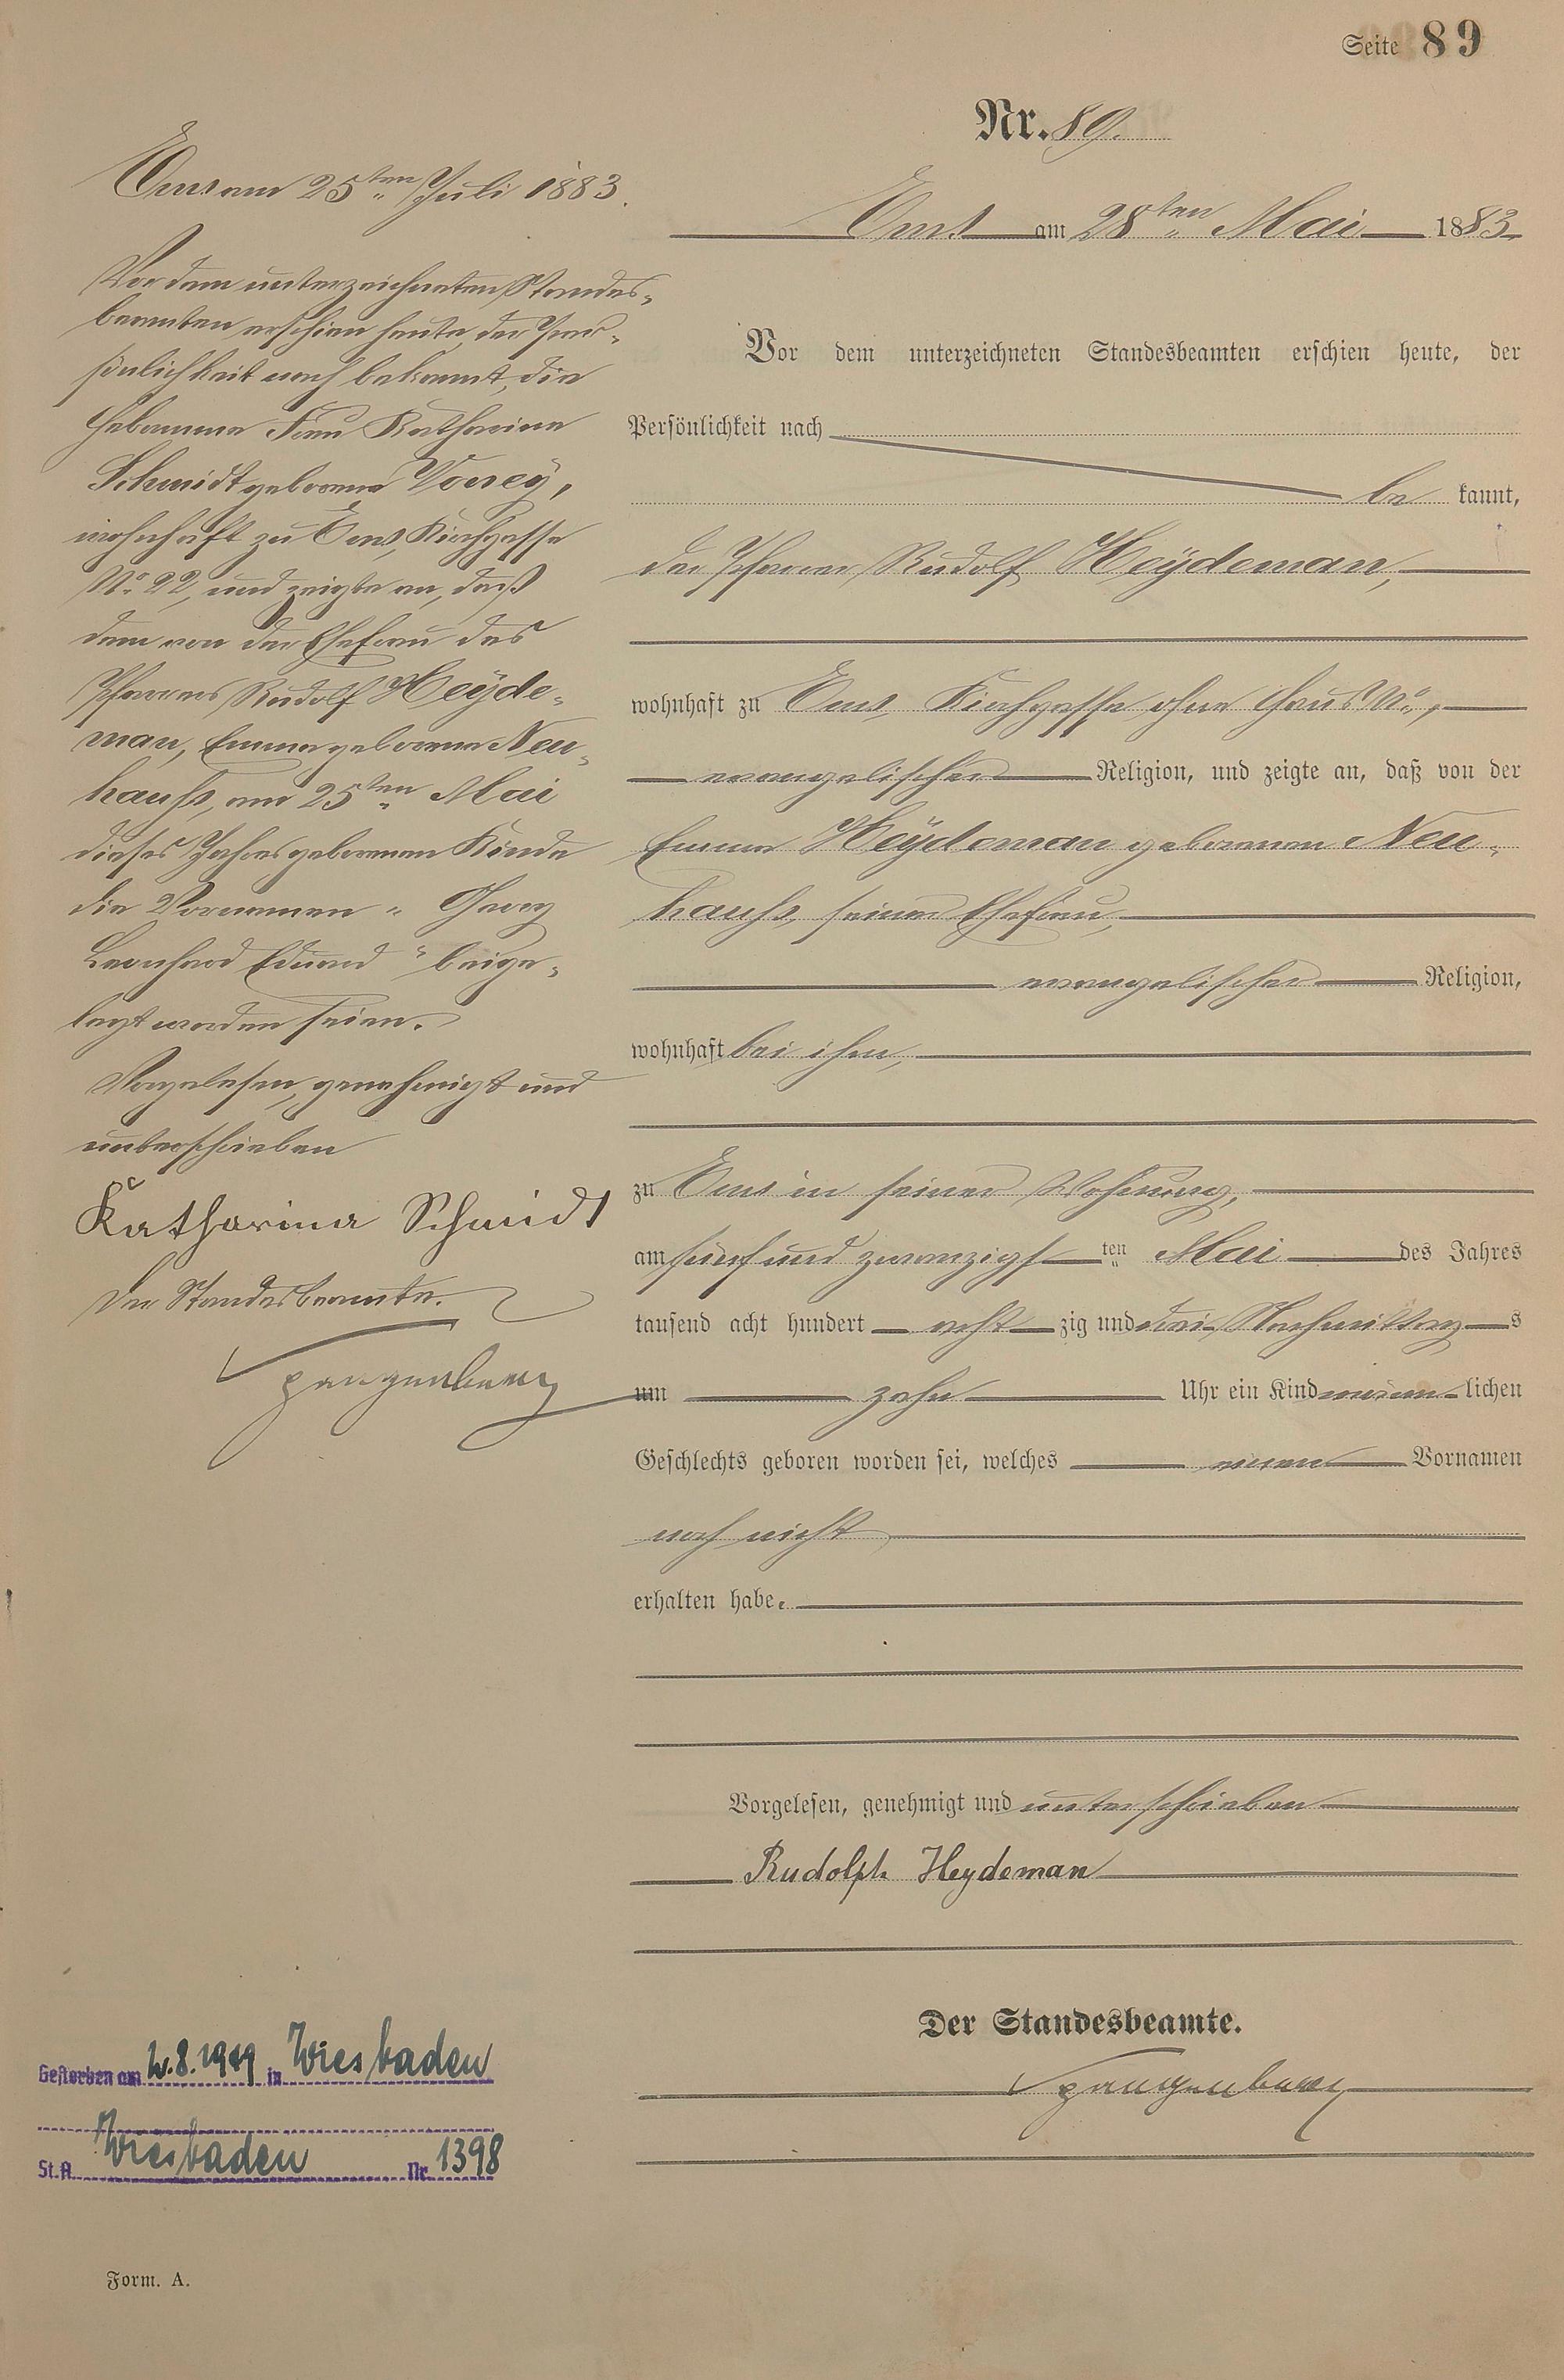 Seite 89
Nr. 89.
Ems am 28ten Mai 1883
Vor dem unterzeichneten Standesbeamten erschien heute, der
Persönlichkeit nach
be kannt,
der Pfarrer Rudolf Heÿdeman,
wohnhaft zu Ems, Kirchgasse ohne Haus No.,
evangelischer Religion, und zeigte an, daß von der
Emma Heÿdeman geborenen Neu-
hauss, seiner Ehefrau,
evangelischer Religion,
wohnhaft bei ihm,
zu Ems in seiner Wohnung,
am fünf und zwanzigs ten Mai des Jahres
tausend acht hundert acht zig und drei, Nachmittag s
um zehn Uhr ein Kind männ- lichen
Geschlechts geboren worden sei, welches einen Vornamen
noch nicht
erhalten habe.
Vorgelesen, genehmigt und unterschrieben
Rudolph Heydeman
Der Standesbeamte.
Spangenberg
Ems am 25ten Juli 1883.
Vor dem unterzeichneten Standes-
beamten erschien heute, der Per-
sönlichkeit nach bekannt, die
Hebamme Frau Katharina
Schmidt geborene
wohnhaft zu Ems, Kirchgasse
No. 22, und zeigte an, daß
dem von der Ehefrau des
Pfarrers Rudolf Heÿde-
man, Emma geborene Neu-
hauss, am 25ten Mai
dieses Jahres geborenen Kinde
die Vornamen „Georg
Leonhard Eduard“ beige-
legt worden seien.
Vorgelesen, genehmigt und
unterschrieben
Katharina Schmidt
Der Standesbeamte.
Spangenberg
Gestorben am 2.8.1949 in Wiesbaden
St.A. Wiesbaden Nr. 1398
Form. A.